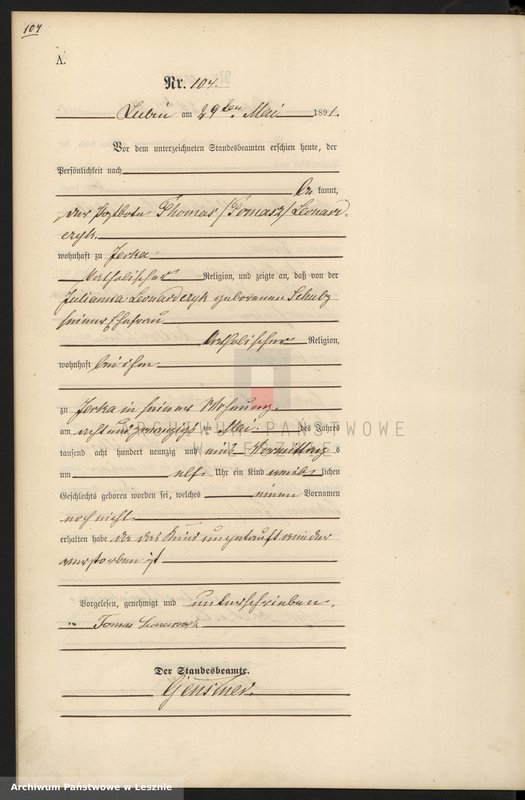 104
A.
Nr. 104.
Lubin am 29ten Mai 1891.
Vor dem unterzeichneten Standesbeamten erschien heute, der
Persönlichkeit nach
be kannt,
der Postbote Thomas /Tomasz/ Leonard-
czyk
wohnhaft zu Jerka
katholischer Religion, und zeigte an, daß von der
Julianna Leonardczyk geborenen Schulz
seiner Ehefrau
katholischer Religion,
wohnhaft bei ihm
zu Jerka in seiner Wohnung
am achtundzwanzigsten Mai des Jahres
tausend acht hundert neunzig und eins Vormittag s
um elf Uhr ein Kind weib lichen
Geschlechts geboren worden sei, welches einen Vornamen
noch nicht
erhalten habe da das Kind ungetauft wieder
verstorben ist
Vorgelesen, genehmigt und unterschrieben.
Tomas
Der Standesbeamte.
ARCHIWUM PAŃSTWOWE
W LESZNIE
Archiwum Państwowe w Lesznie